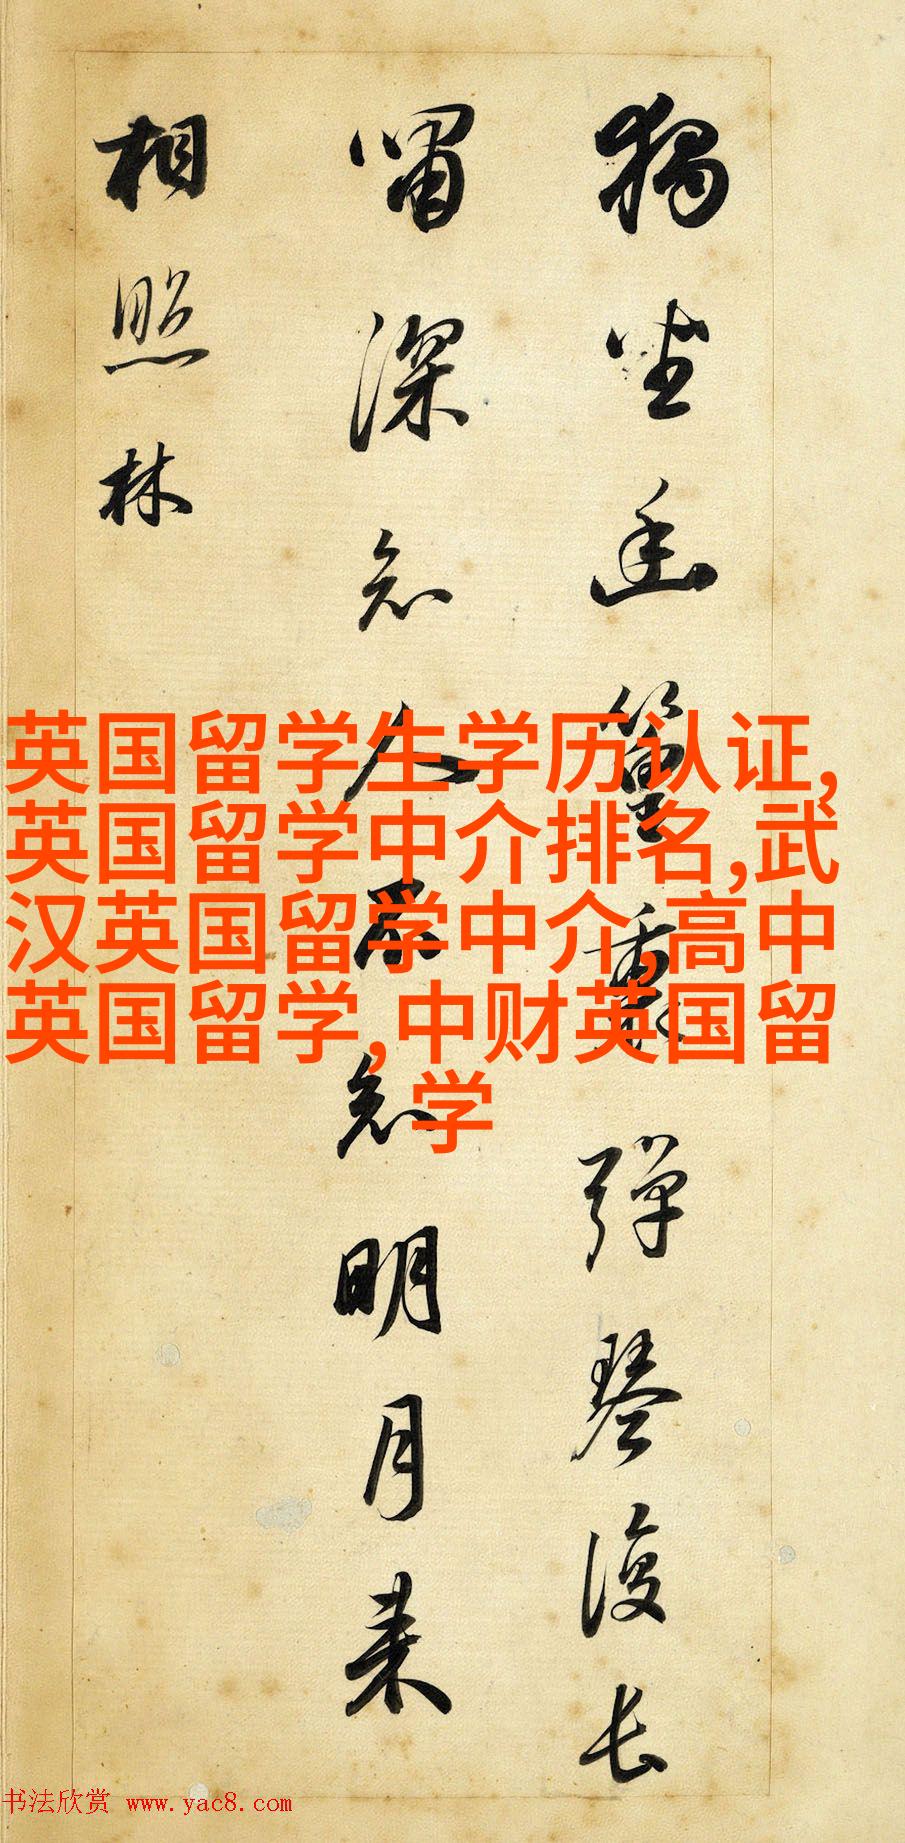 獨坐幽篁裏彈琴復長
嘯深知人不知明月來
相照林
英国留学生学历认证,
英国留学中介排名,武
汉英国留学中介,高中
英国留学,中财英国留
学
书法欣赏 www.yac8.com